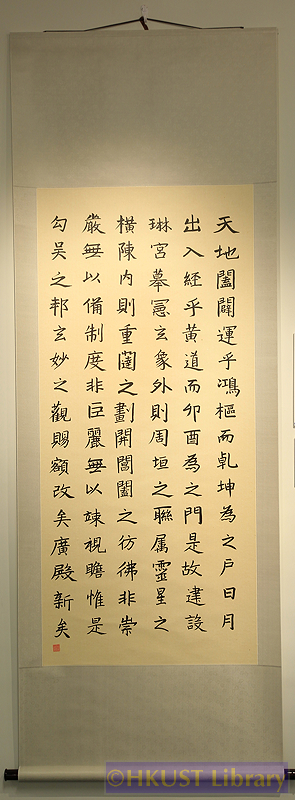 天地闔闢運乎鴻樞而乹坤為之戶日月
出入經乎黃道而卯酉為之門是故建設
琳宮摹憲玄象外則周垣之聯属靈星之
橫陳内則重闥之劃開閶闔之彷彿非崇
嚴無以備制度非巨麗無以竦視瞻惟是
勾吴之邦玄妙之觀賜額改矣廣殿新矣
©HKUST Library